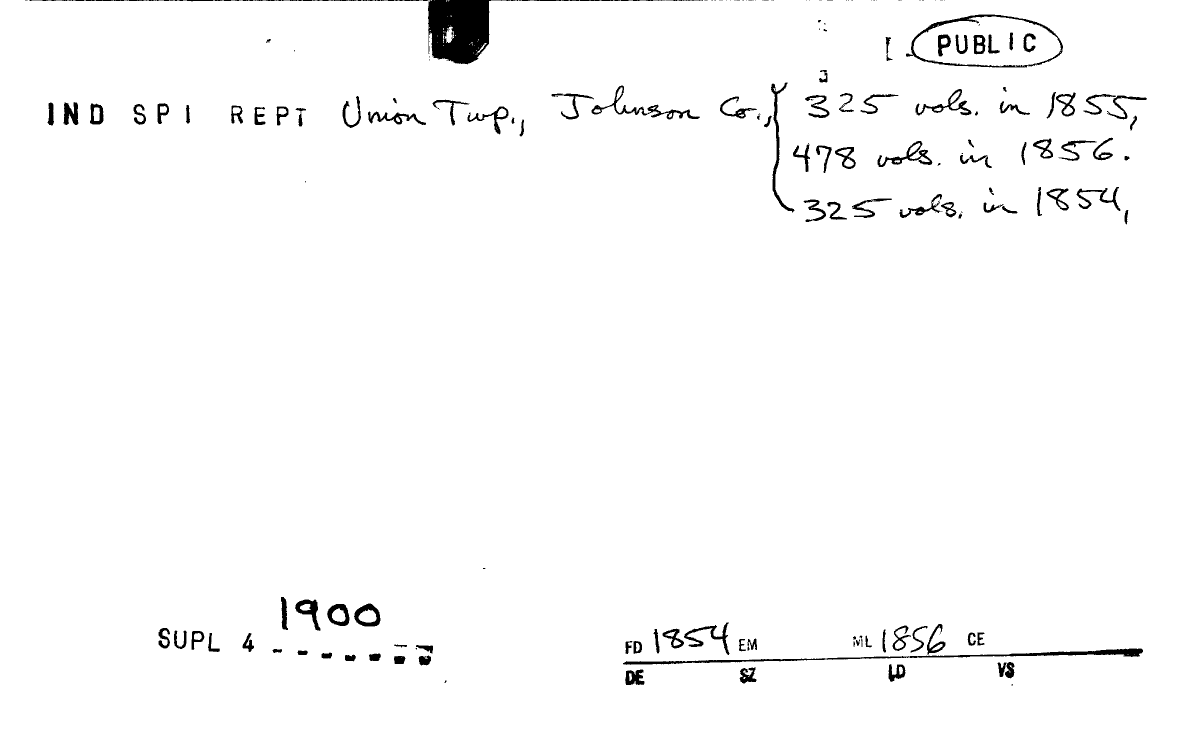 PUBLIC
IND SPI REPT Union Twp., Johnson Co., 325 vols. in 1855,
478 vols. in 1856.
325 vols. in 1854,
1900
SUPL 4 - - - - - - -
FD 1854 EM ML 1856 CE
DE SZ LD VS